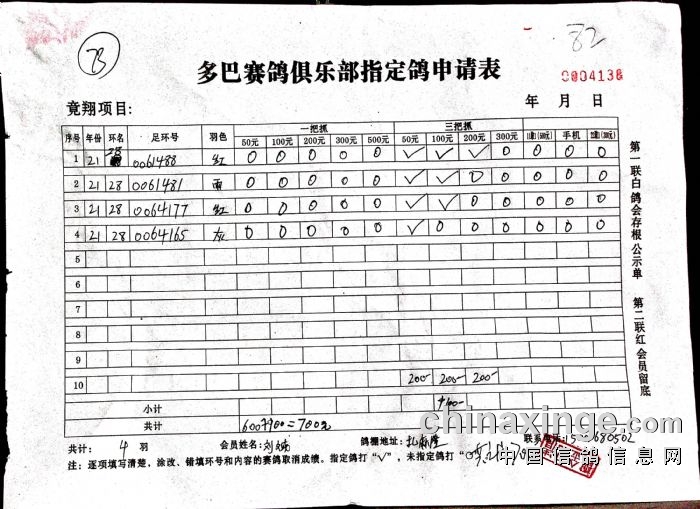 23
82
多巴赛鸽俱乐部指定鸽申请表
0004138
竟翔项目:
年 月 日
序号 年份 环名 足环号 羽色 一把抓 三把抓
50元 100元 200元 300元 500元 50元 100元 200元 300元 手机
1 21 28 0061488 红 0 0 0 0 0 ✓ ✓ ✓ 0 0 0 0
2 21 28 0061481 雨 0 0 0 0 0 ✓ ✓ 0 0 0 0 0
3 21 28 0064177 红 0 0 0 0 0 ✓ ✓ 0 0 0 0 0
4 21 28 0064165 灰 0 0 0 0 0 ✓ 0 0 0 0 0 0
5
6
7
8
9
10 200- 200- 200-
小计 +100-
共计 600+100=700元
共计: 4 羽 会员姓名: 鸽棚地址: 联系电话:
注: 逐项填写清楚，涂改、错填环号和内容的赛鸽取消成绩。指定鸽打“✓”，未指定鸽打“
第一联白 鸽会存根 公示单 第二联红 会员留底
chinaxinge.com
中国信鸽信息网